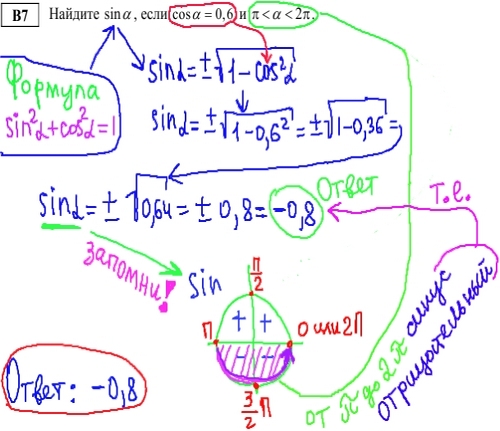 B7 Найдите sin α, если cos α = 0,6 и π < α < 2π.
Формула
sin²α + cos²α = 1
sinα = ±√1 − cos²α
sinα = ±√1−0,6² = ±√1−0,36 =
sinα = ±√0,64 = ±0,8 = −0,8
Ответ
т.е.
ЗАПОМНИ!
sin
π/2
+ +
π
0 или 2π
− −
3/2 π
от π до 2π синус
отрицательный
Ответ: −0,8